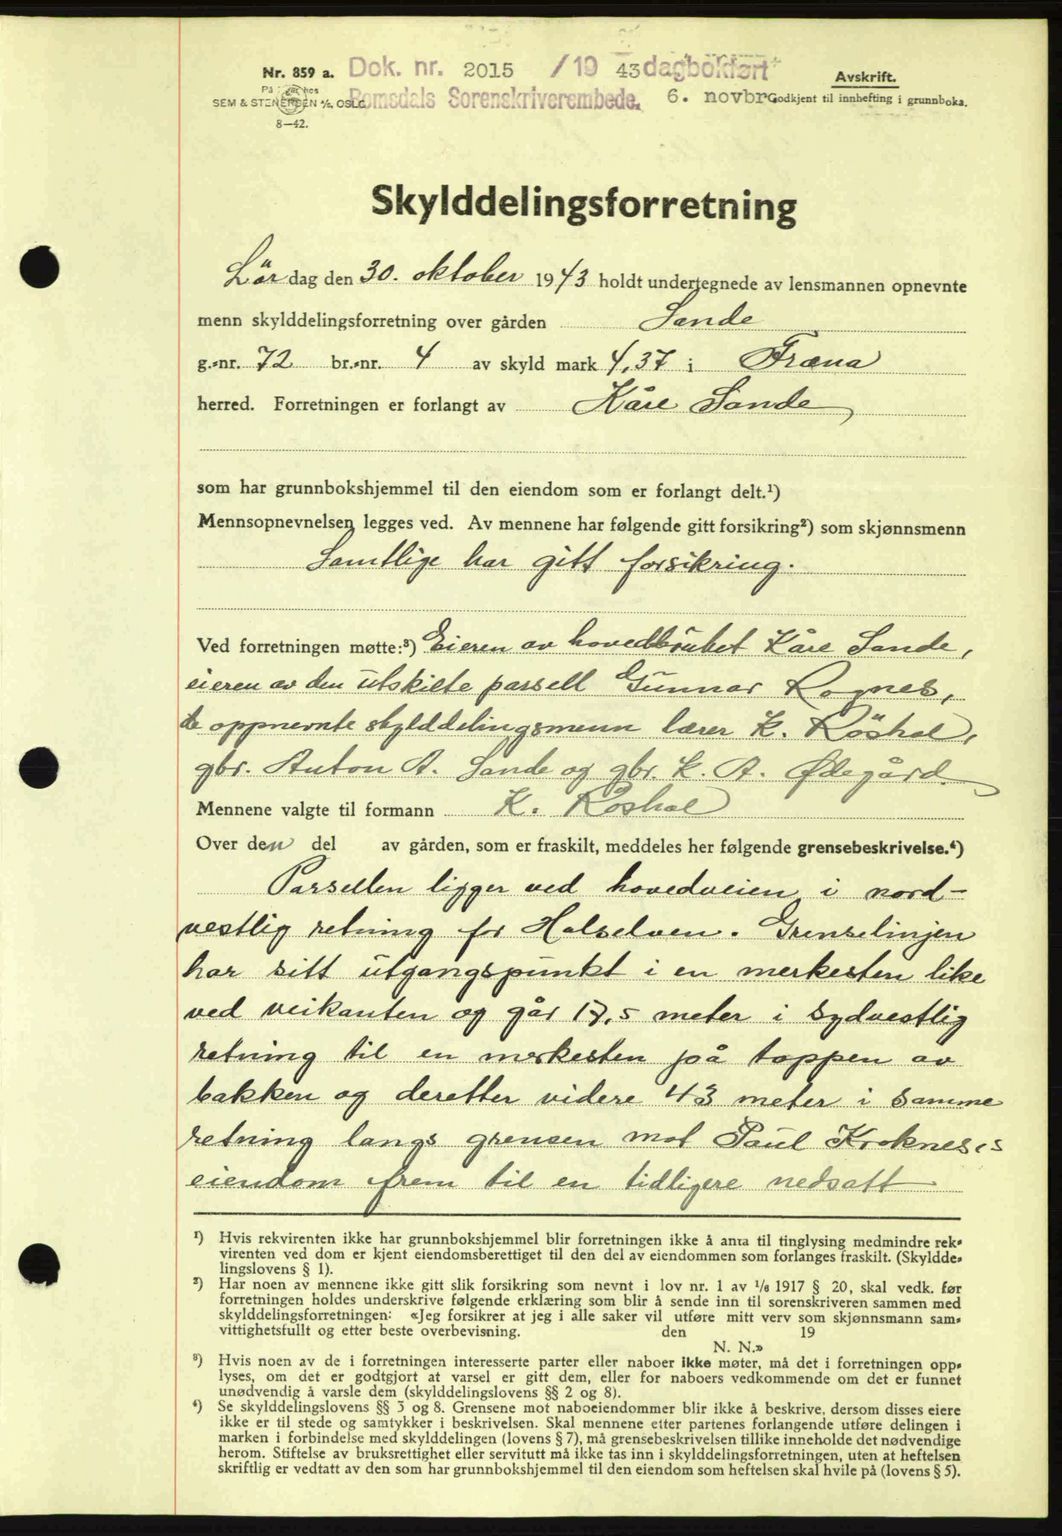 Nr. 859 a. Dok. nr. 2015 /19 43 dagbokført Avskrift.
På lager hos
SEM & STENERSEN A/S, OSLO. Romsdals Sorenskriverembede. 6. novbr. Godkjent til innhefting i grunnboka.
8—42.
Skylddelingsforretning
Lördag den 30. oktober 1943 holdt undertegnede av lensmannen opnevnte
menn skylddelingsforretning over gården Sande
g.-nr. 72 br.-nr. 4 av skyld mark 4,37 i Fræna
herred. Forretningen er forlangt av Kåre Sande
som har grunnbokshjemmel til den eiendom som er forlangt delt.¹)
Mennsopnevnelsen legges ved. Av mennene har følgende gitt forsikring²) som skjønnsmenn
Samtlige har gitt forsikring.
Ved forretningen møtte:³) Eieren av hovedbruket Kåre Sande,
eieren av den utskilte parsell Gunnar Rognes,
de oppnevnte skylddelingsmenn lærer K. Röshol,
gbr. Anton A. Sande og gbr. K. A. Ødegård
Mennene valgte til formann K. Röshol
Over den del av gården, som er fraskilt, meddeles her følgende grensebeskrivelse.⁴)
Parsellen ligger ved hovedveien i nord-
vestlig retning for Holselven. Grenselinjen
har sitt utgangspunkt i en merkesten like
ved veikanten og går 17,5 meter i sydvestlig
retning til en merkesten på toppen av
bakken og deretter videre 43 meter i samme
retning langs grensen mot Paul Kroknes,s
eiendom frem til en tidligere nedsatt
¹) Hvis rekvirenten ikke har grunnbokshjemmel blir forretningen ikke å anta til tinglysing medmindre rek-
virenten ved dom er kjent eiendomsberettiget til den del av eiendommen som forlanges fraskilt. (Skyldde-
lingslovens § 1).
²) Har noen av mennene ikke gitt slik forsikring som nevnt i lov nr. 1 av 1/6 1917 § 20, skal vedk. før
forretningen holdes underskrive følgende erklæring som blir å sende inn til sorenskriveren sammen med
skylddelingsforretningen: «Jeg forsikrer at jeg i alle saker vil utføre mitt verv som skjønnsmann sam-
vittighetsfullt og etter beste overbevisning. den 19
N. N.»
³) Hvis noen av de i forretningen interesserte parter eller naboer ikke møter, må det i forretningen opp-
lyses, om det er godtgjort at varsel er gitt dem, eller for naboers vedkommende om det er funnet
unødvendig å varsle dem (skylddelingslovens §§ 2 og 8).
⁴) Se skylddelingslovens §§ 3 og 8. Grensene mot naboeiendommer blir ikke å beskrive, dersom disses eiere
ikke er til stede og samtykker i beskrivelsen. Skal mennene etter partenes forlangende utføre delingen i
marken i forbindelse med skylddelingen (lovens § 7), må grensebeskrivelsen tillike inneholde det nødvendige
herom. Stiftelse av bruksrettighet eller servitutt må ikke tas inn i skylddelingsforretningen, uten at heftelsen
skriftlig er vedtatt av den som har grunnbokshjemmel til den eiendom som heftelsen skal hvile på (lovens § 5).